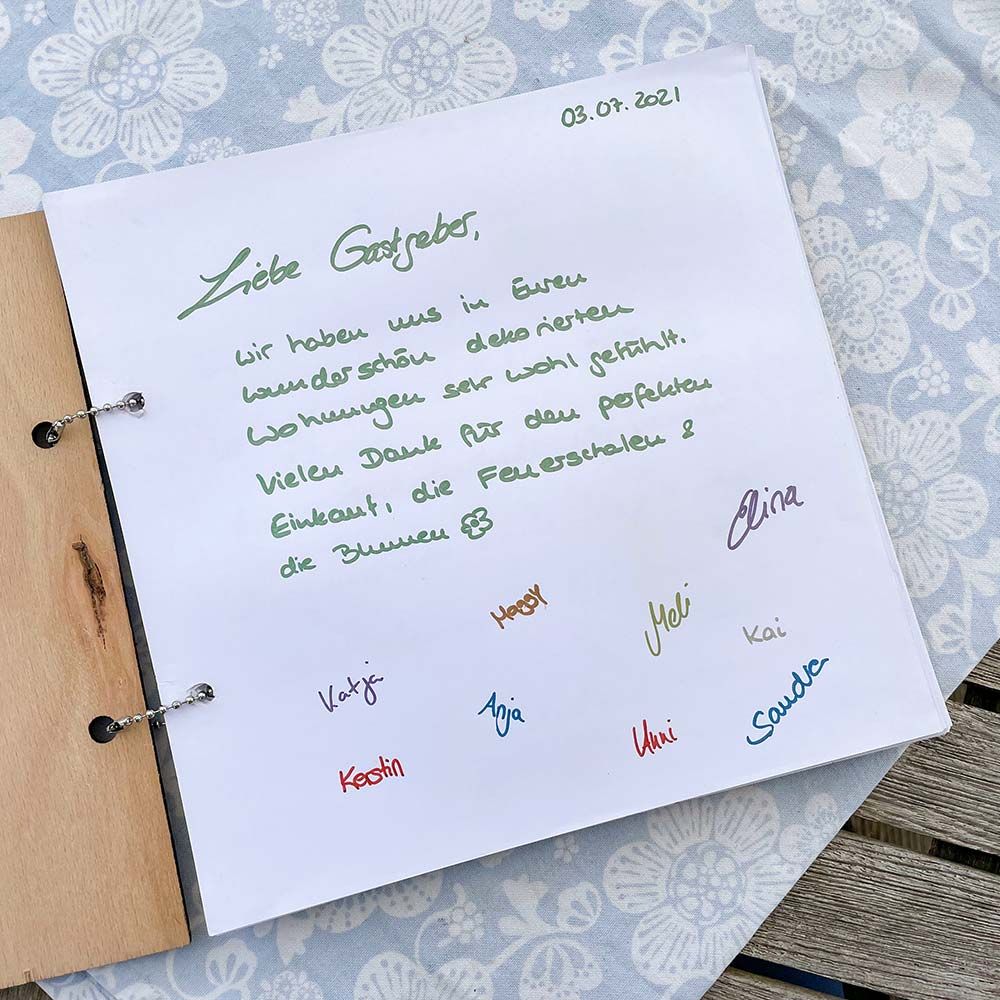 03.07.2021
Liebe Gastgeber,
wir haben uns in Euren
wunderschön dekorierten
Wohnungen sehr wohl gefühlt.
Vielen Dank für den perfekten
Einkauf, die Feuerschalen &
die Blumen
Elina
Maggy
Meli
Kai
Katja
Anja
Sandra
Kerstin